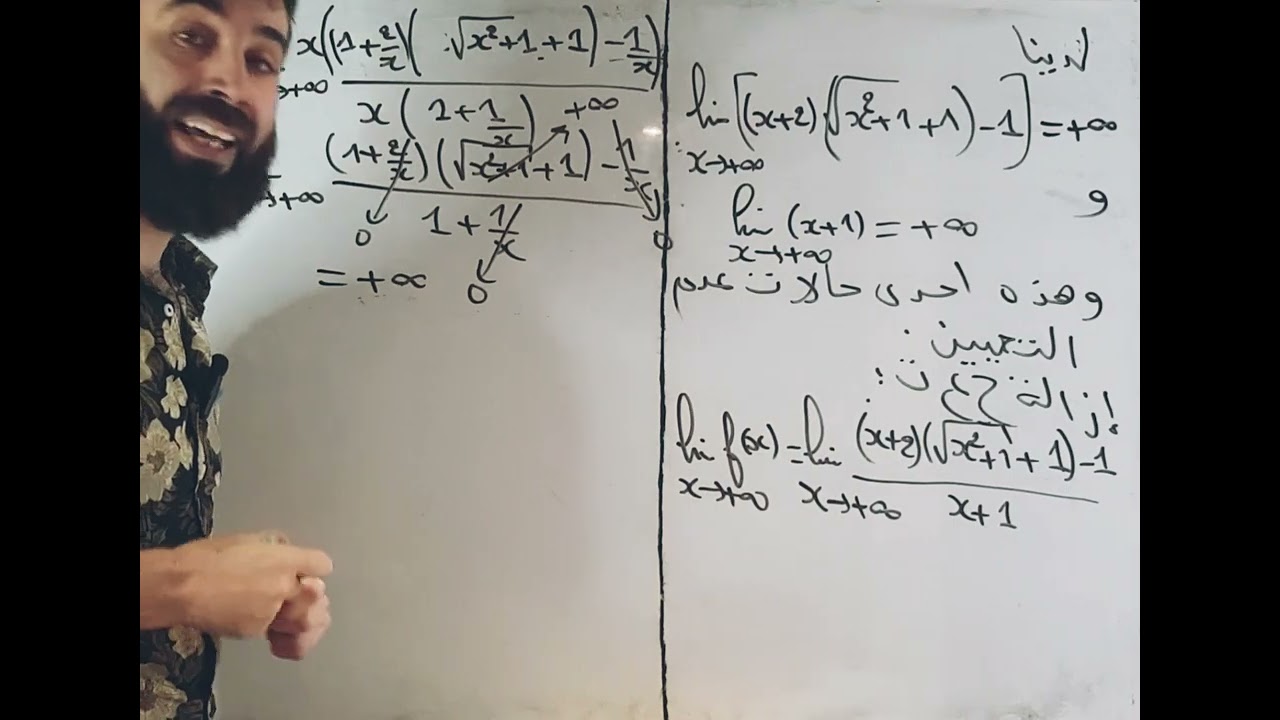 لدينا
lim [(x+2)(√x²+1+1)-1] = +∞
x→+∞
و
lim (x+1) = +∞
x→+∞
وهذه احدى حالات عدم
التعيين.
إزالة ح ع ت:
lim f(x) = lim (x+2)(√x²+1+1)-1
x→+∞ x→+∞ x+1
x((1+2/x)(√x²+1+1)-1/x)
→+∞
x(1+1/x) +∞
(1+2/x)(√x²+1+1)-1/x
→+∞
0 1+1/x 0
= +∞ 0